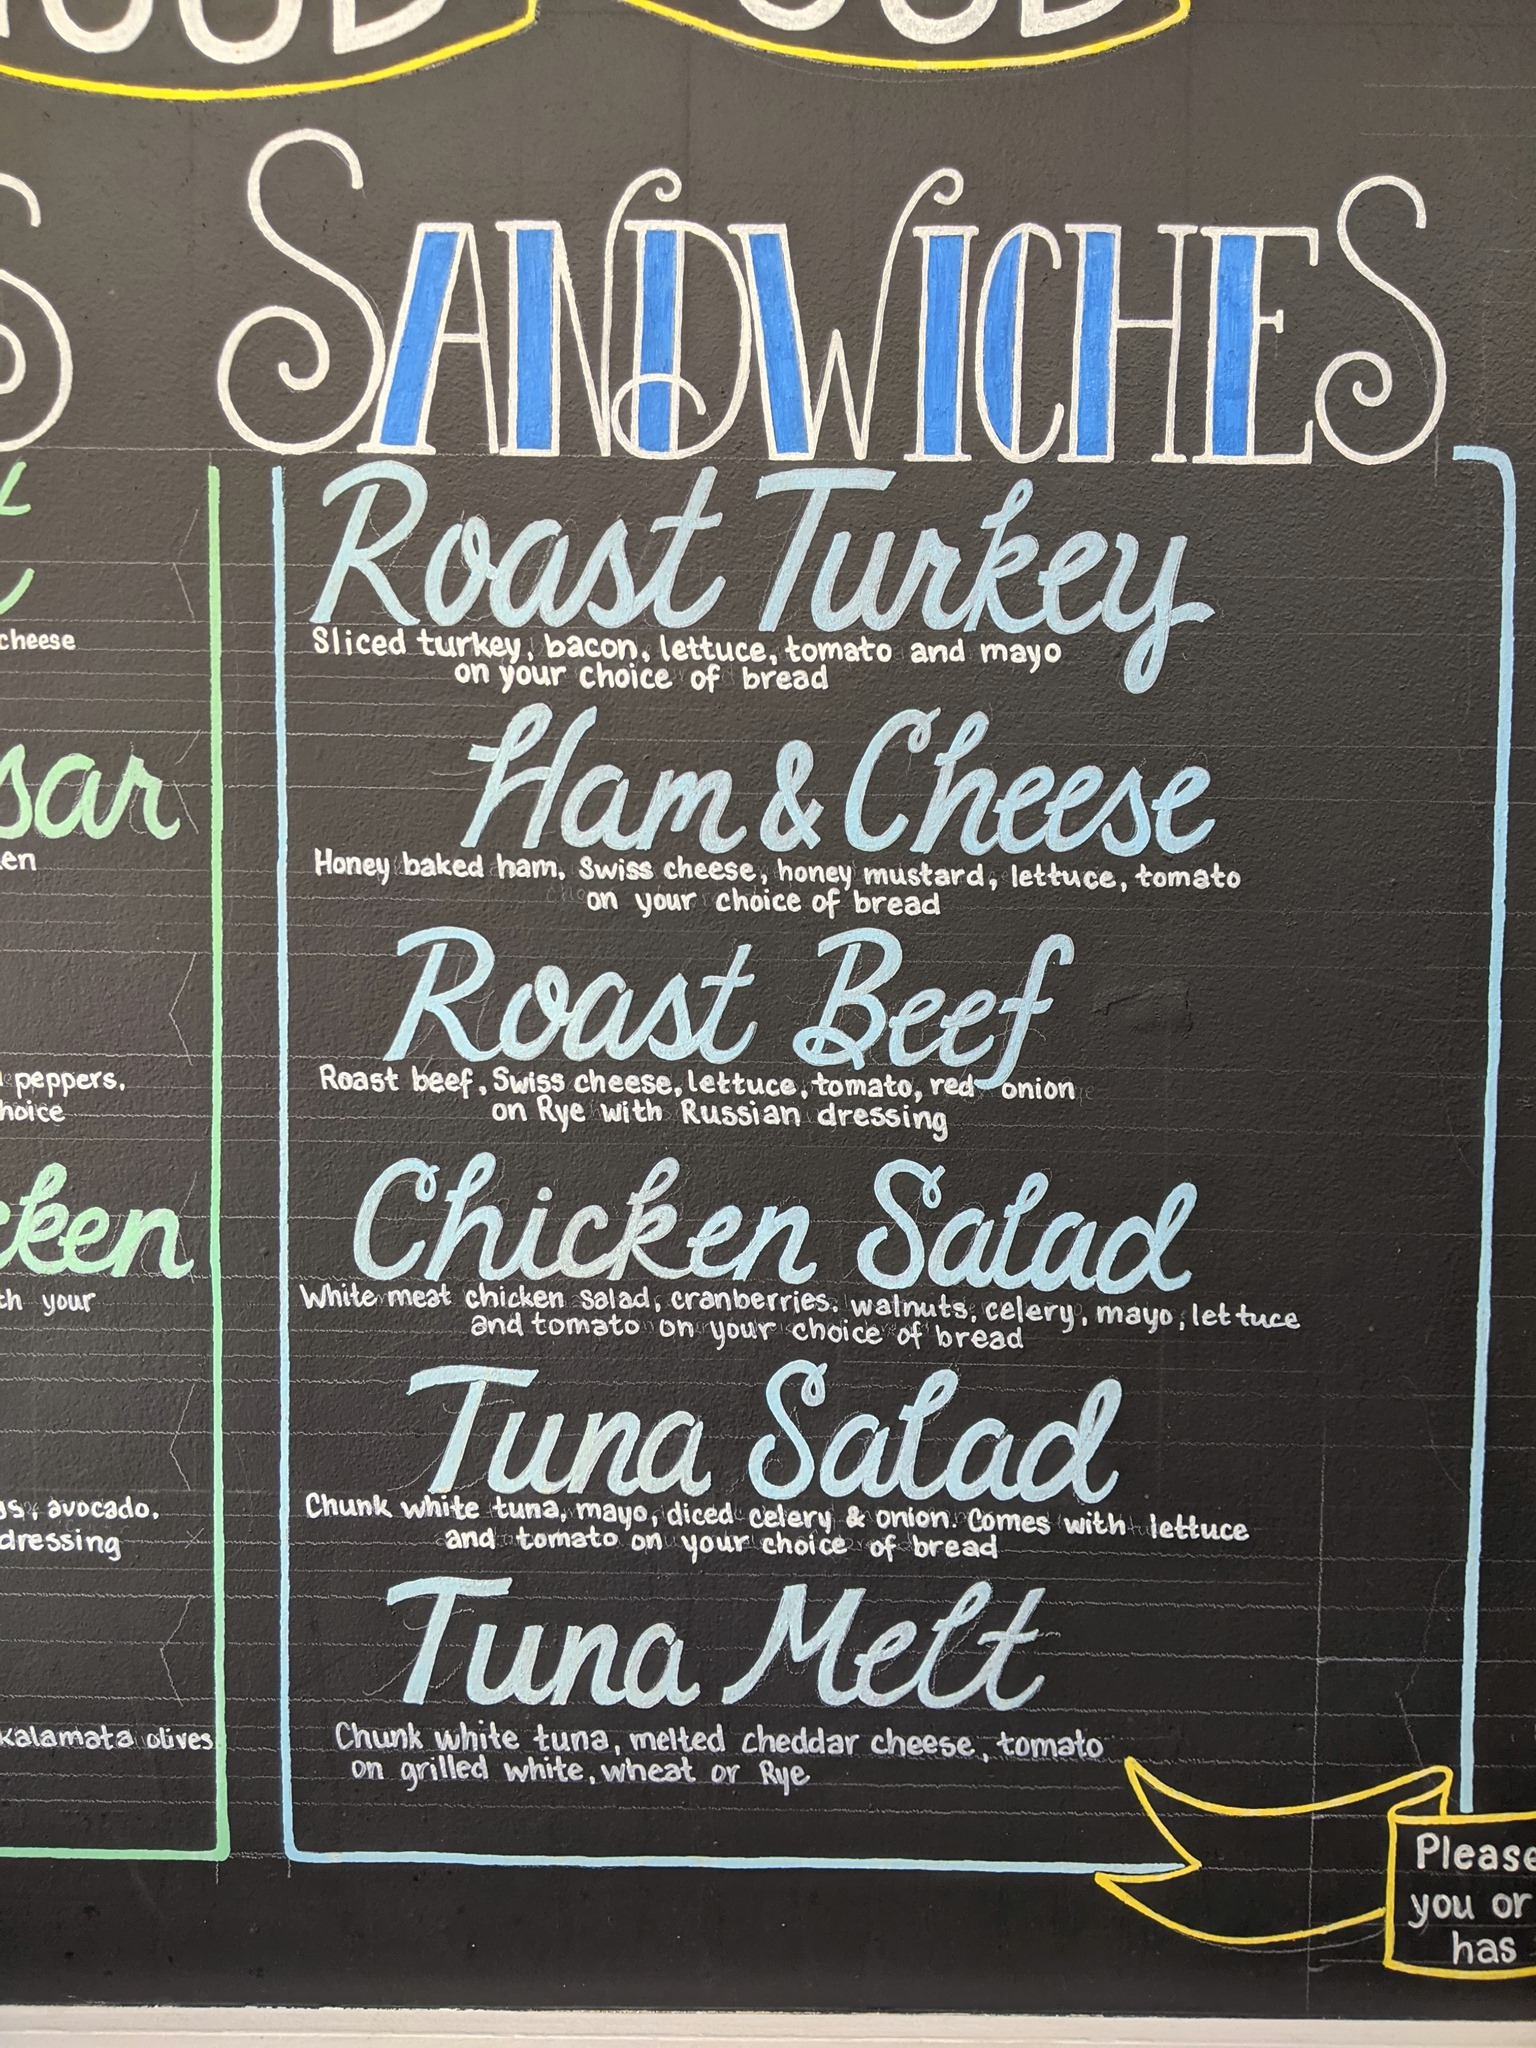 SANDWICHES
Roast Turkey
Sliced turkey, bacon, lettuce, tomato and mayo
on your choice of bread
Ham & Cheese
Honey baked ham, Swiss cheese, honey mustard, lettuce, tomato
on your choice of bread
Roast Beef
Roast beef, Swiss cheese, lettuce, tomato, red onion
on Rye with Russian dressing
Chicken Salad
White meat chicken salad, cranberries, walnuts, celery, mayo, lettuce
and tomato on your choice of bread
Tuna Salad
Chunk white tuna, mayo, diced celery & onion. Comes with lettuce
and tomato on your choice of bread
Tuna Melt
Chunk white tuna, melted cheddar cheese, tomato
on grilled white, wheat or Rye
cheese
peppers,
avocado,
dressing
kalamata olives
your
Please
you or
has